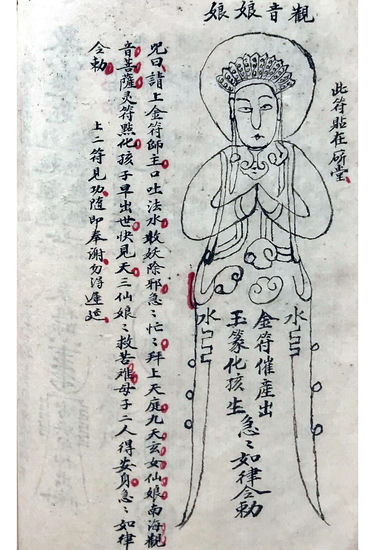 觀音娘娘
此符貼在所堂
水
金符催產出
玉篆化孩生
急〻如律令勅
水
咒曰請上金符師主口吐法水散妖除邪急〻忙〻拜上天庭九天玄女仙娘南海觀
音菩薩灵符點化孩子早出世快見天三仙娘〻救苦难母子二人得安身急〻如律
令勅
上二符見功随即奉謝勿得遲延